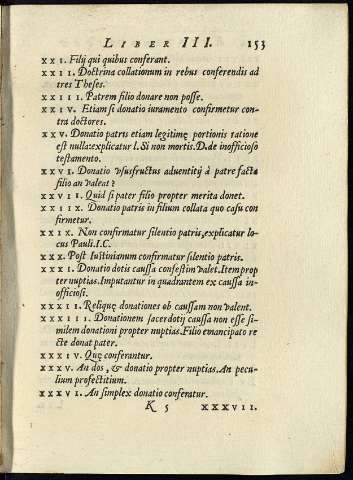 LIBER III. 153
XXI. Filij qui quibus conferant.
XXII. Doctrina collationum in rebus conferendis ad
tres Theses.
XXIII. Patrem filio donare non posse.
XXIV. Etiam si donatio iuramento confirmetur con-
tra doctores.
XXV. Donatio patris etiam legitimę portionis ratione
est nulla: explicatur l. Si non mortis. D. de inofficioso
testamento.
XXVI. Donatio vsusfructus aduentitij à patre facta
filio an valeat?
XXVII. Quid si pater filio propter merita donet.
XXIIX. Donatio patris in filium collata quo casu con
firmetur.
XXIX. Non confirmatur silentio patris, explicatur lo-
cus Pauli. I.C.
XXX. Post Iustinianum confirmatur silentio patris.
XXXI. Donatio dotis caussa confestim valet. Item prop
ter nuptias. Imputantur in quadrantem ex caussa in-
officiosi.
XXXII. Reliquę donationes ob caussam non valent.
XXXIII. Donationem sacerdotij caussa non esse si-
milem donationi propter nuptias. Filio emancipato re
cte donat pater.
XXXIV. Quę conferantur.
XXXV. An dos, & donatio propter nuptias. An pecu-
lium profectitium.
XXXVI. An simplex donatio conferatur.
K 5 XXXVII.